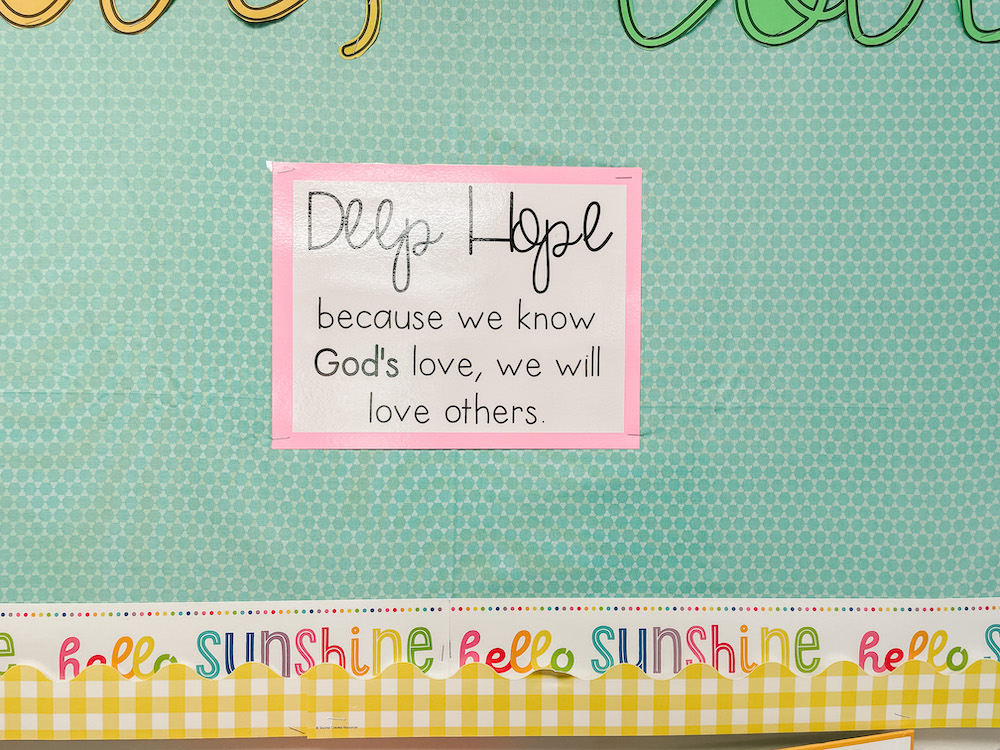 Deep Hope
because we know
God's love, we will
love others.
hello sunshine hello sunshine hello